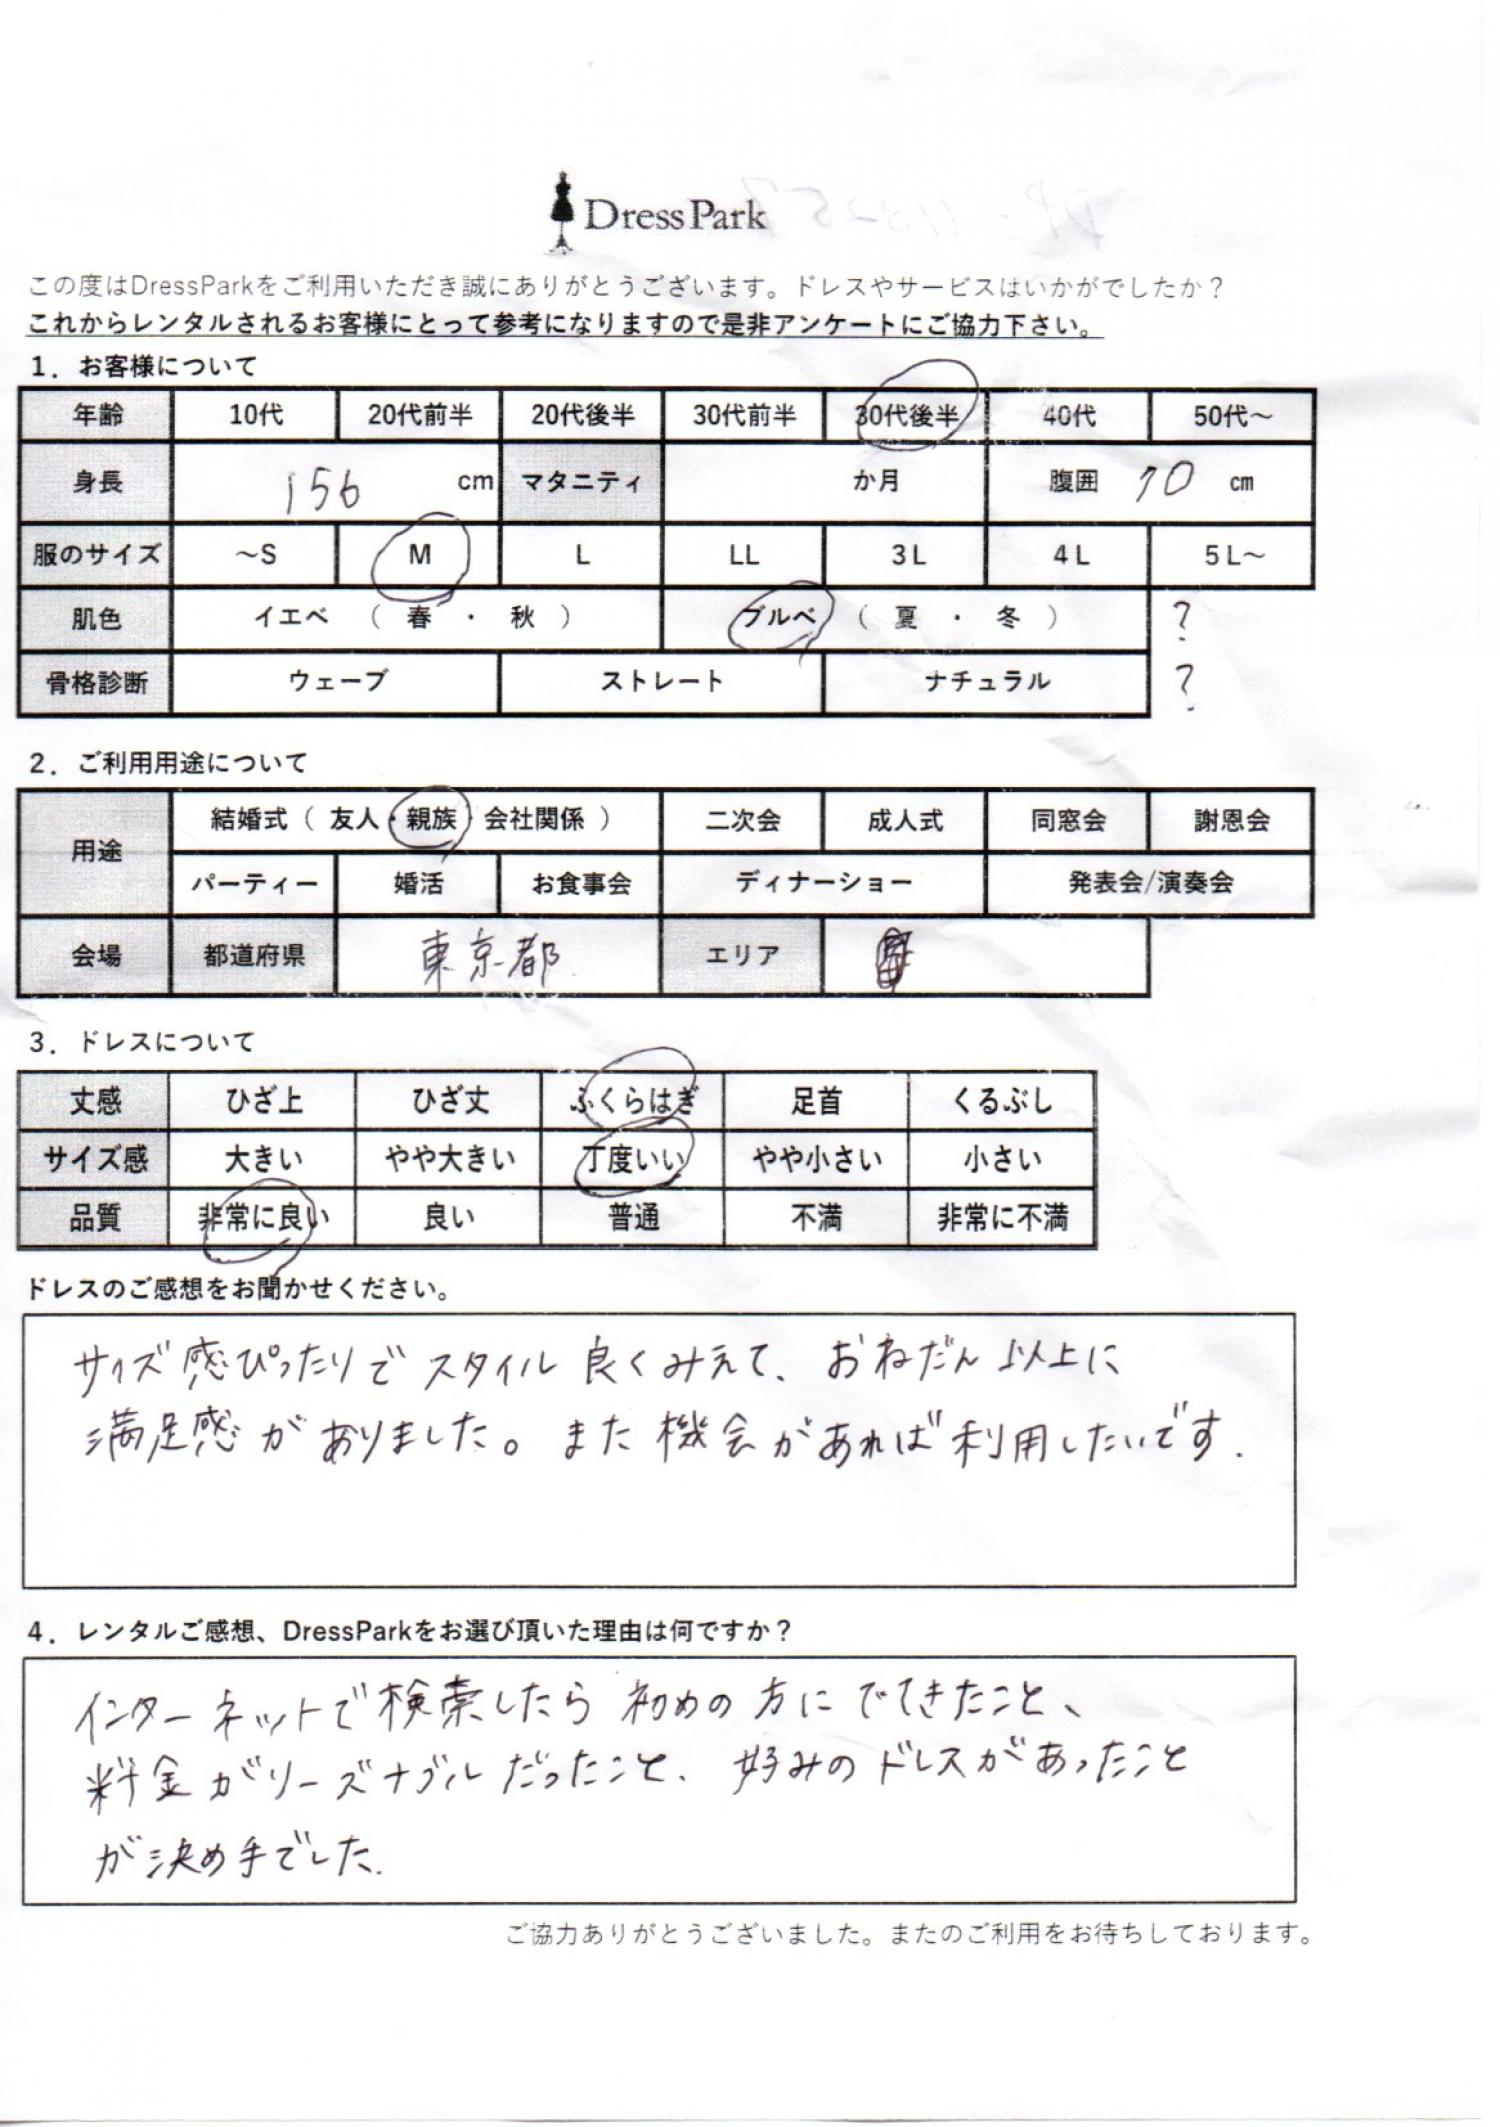 DressPark
この度はDressParkをご利用いただき誠にありがとうございます。ドレスやサービスはいかがでしたか？
これからレンタルされるお客様にとって参考になりますので是非アンケートにご協力下さい。
1．お客様について
年齢 10代 20代前半 20代後半 30代前半 30代後半 40代 50代～
身長 156 cm マタニティ か月 腹囲 70 cm
服のサイズ ～S M L LL 3L 4L 5L～
肌色 イエベ （ 春 ・ 秋 ） ブルベ （ 夏 ・ 冬 ） ?
骨格診断 ウェーブ ストレート ナチュラル ?
2．ご利用用途について
用途 結婚式（ 友人・親族・会社関係 ） 二次会 成人式 同窓会 謝恩会
パーティー 婚活 お食事会 ディナーショー 発表会/演奏会
会場 都道府県 東京都 エリア
3．ドレスについて
丈感 ひざ上 ひざ丈 ふくらはぎ 足首 くるぶし
サイズ感 大きい やや大きい 丁度いい やや小さい 小さい
品質 非常に良い 良い 普通 不満 非常に不満
ドレスのご感想をお聞かせください。
サイズ感ぴったりでスタイル良くみえて、おねだん以上に
満足感がありました。また機会があれば利用したいです.
4．レンタルご感想、DressParkをお選び頂いた理由は何ですか？
インターネットで検索したら初めの方にでてきたこと、
料金がリーズナブルだったこと、好みのドレスがあったこと
が決め手でした.
ご協力ありがとうございました。またのご利用をお待ちしております。